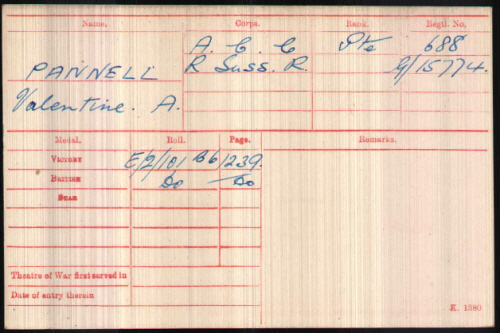 Name. Corps. Rank. Regtl. No.
A. C. C Pte 688
PANNELL R Suss. R. G/15774.
Valentine. A.
Medal. Roll. Page. Remarks.
VICTORY E/2/101 B6 1239.
BRITISH Do Do
STAR
Theatre of War first served in
Date of entry therein
K. 1380